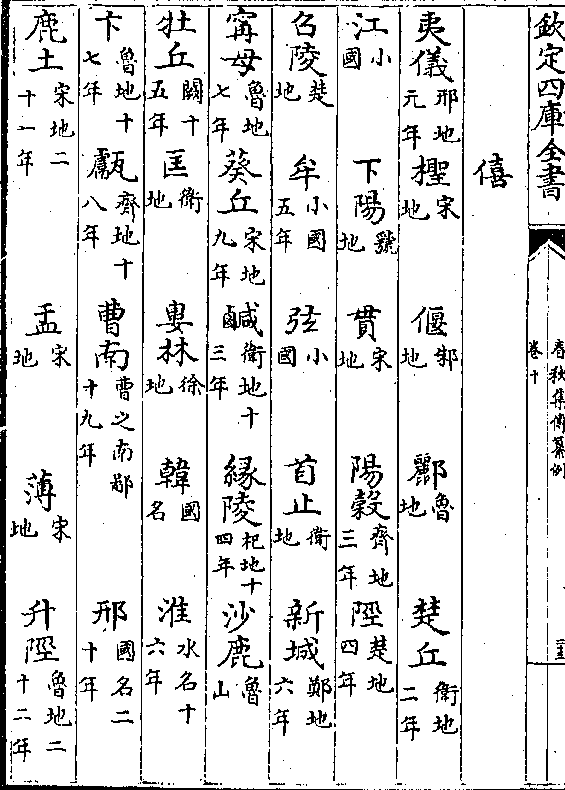 欽定四庫全書
春秋集傳纂例
卷十
僖
夷儀邢地元年 檉宋地 偃邾地 酈魯地 楚丘衛地二年
江小國 下陽虢地 貫宋地 陽穀齊地三年 陘楚地四年
召陵楚地 牟小國五年 弦小國 首止衛地 新城鄭地六年
甯母魯地七年 葵丘宋地九年 鹹衛地十三年 緣陵杞地十四年 沙鹿魯山
牡丘闕十五年 匡衛地 婁林徐地 韓國名 淮水名十六年
卞魯地十七年 甗齊地十八年 曹南曹之南鄙十九年 邢國名二十年
鹿土宋地二十一年 盂宋地 薄宋地 升陘魯地二十二年